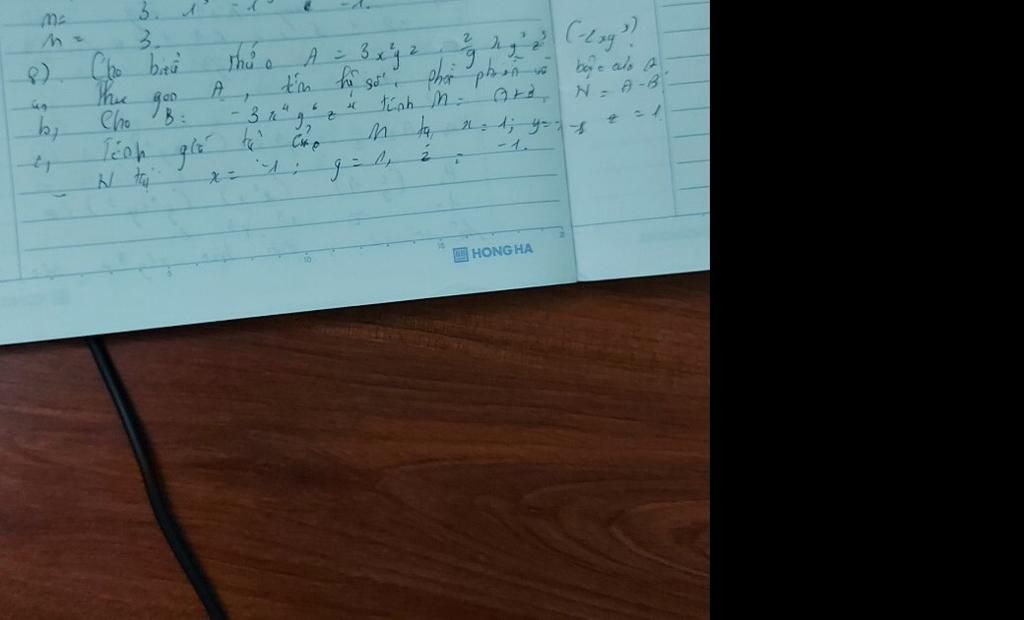 m= 3. 1³ -1³ -1.
m = 3.
8) Cho biểu thức A = 3x²yz . 2/9 xy²z³ (-2xy³)
a, Thu gọn A, tìm hệ số, phần biến và bậc của A.
b, Cho B = -3x⁴y⁶z⁴ tính M = A+B. N = A-B
c, Tính giá trị của M tại x = 1; y = z = 1.
- N tại x = -1; y = 1, z = -1.
5 10 15
HONG HA